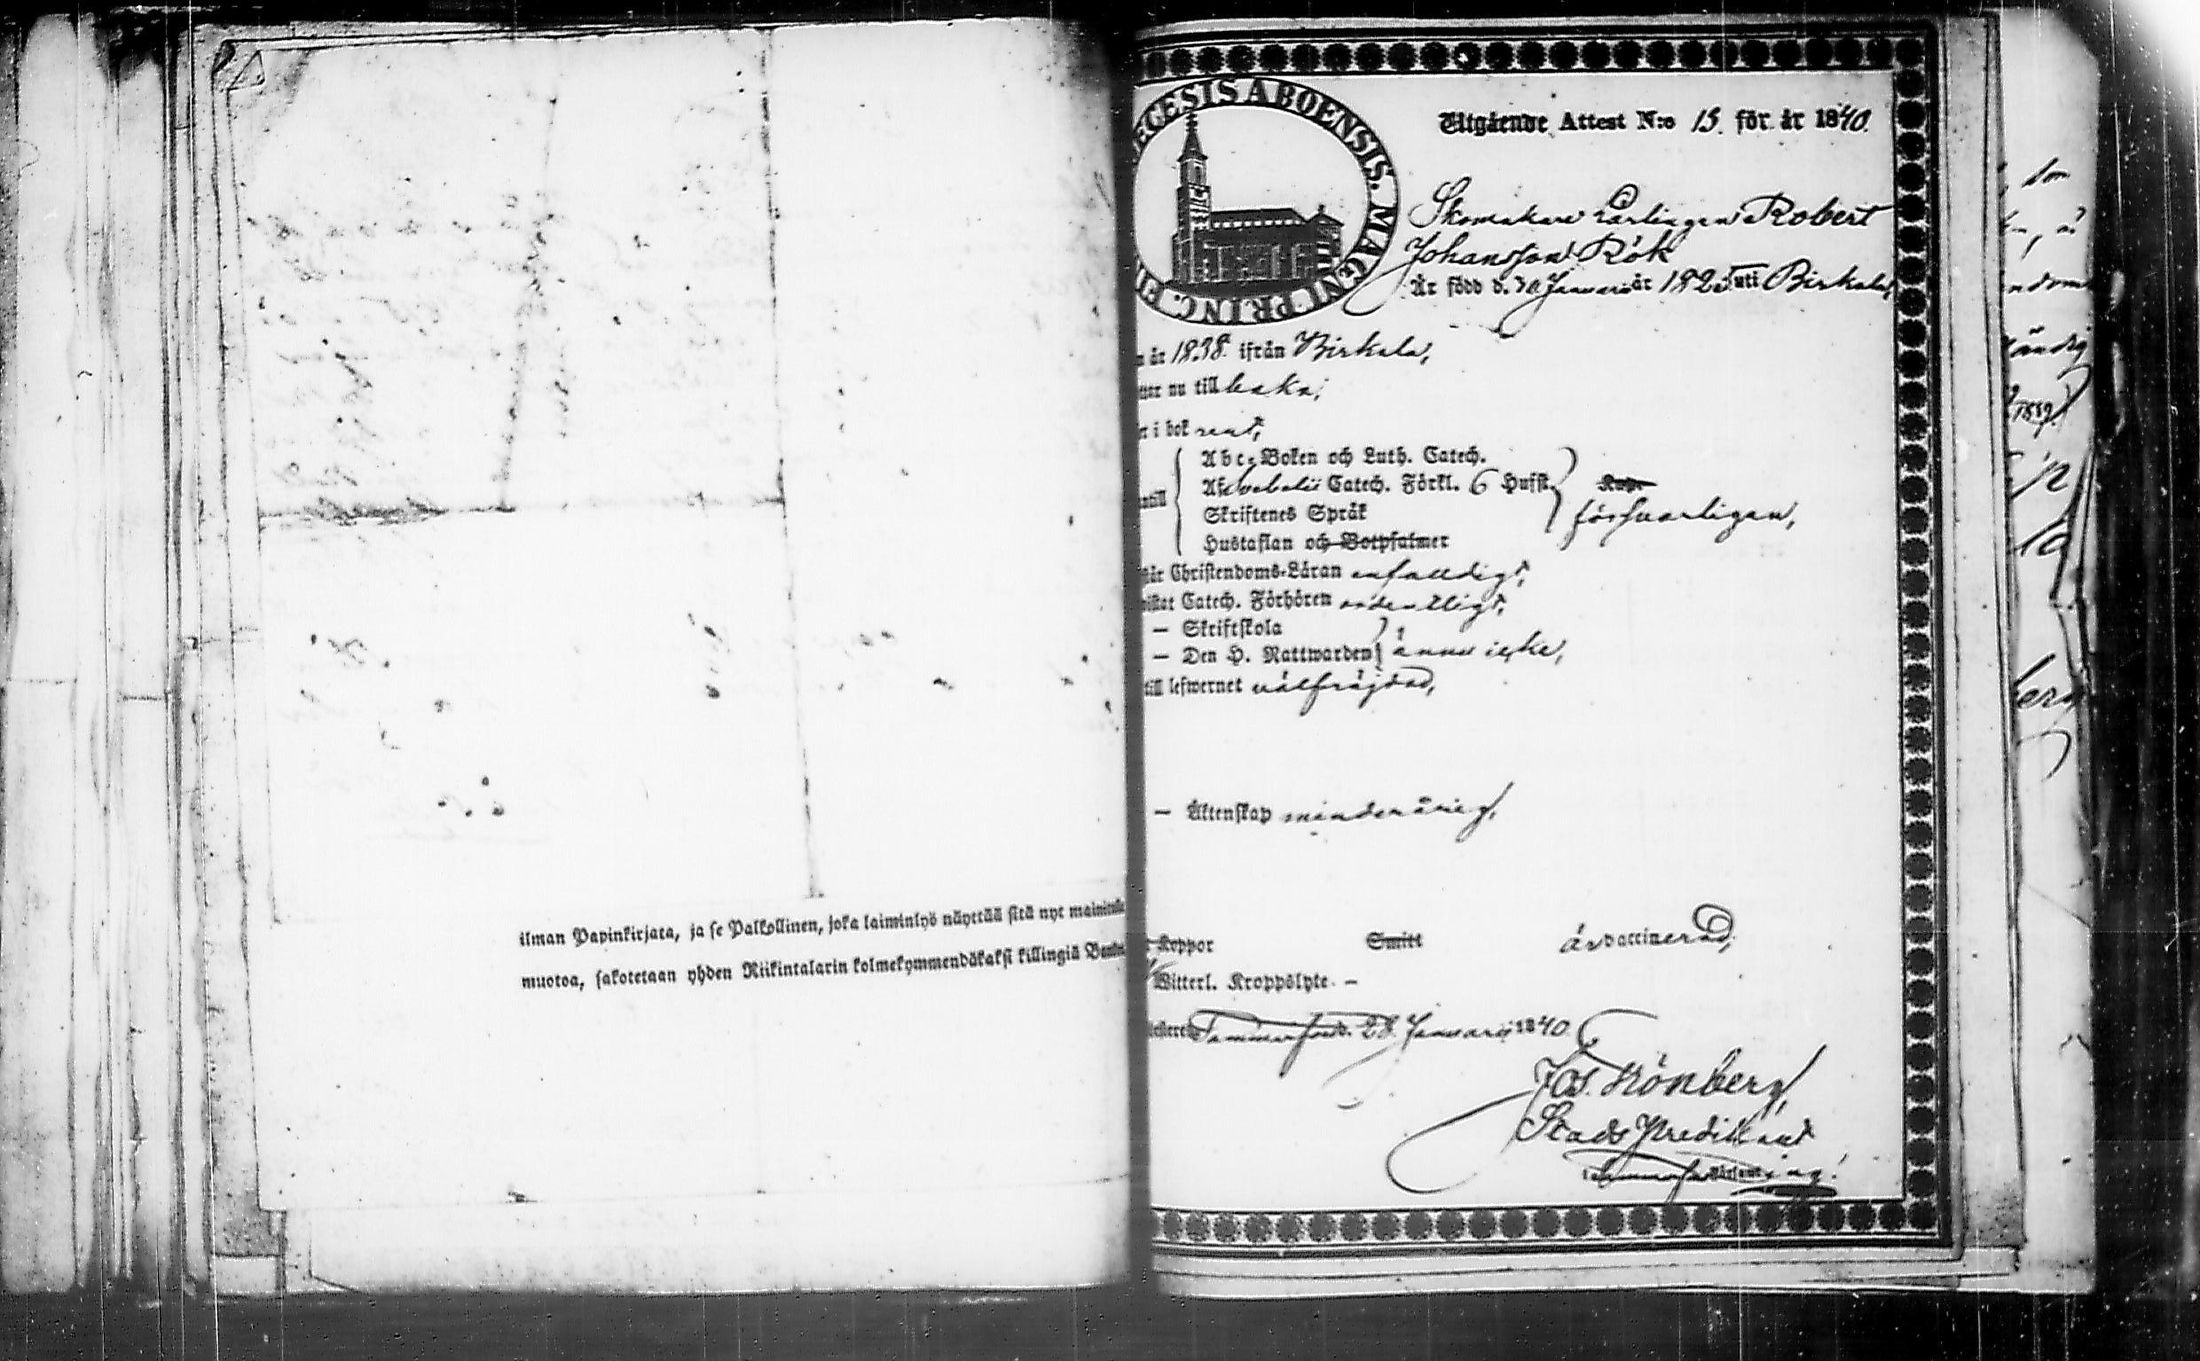 ilman Papinkirjata, ja se Palkollinen, joka laiminlyö näyttää sitä nyt
muotoa, sakotetaan yhden Riikintalarin kolmekymmendäkaksi killingiä
ŒCESIS ABOENSIS. MAGNI PRINC. FI
Utgående Attest N:o 13. för år 1840.
Skomakare Lärlingen Robert
Johansson Rök
Är född d. 30 Januari år 1825 uti Birkala,
år 1838. ifrån Birkala,
nu till baka;
i bok rent,
Abc-Boken och Luth. Catech.
Catech. Förkl. 6 Hufst.
Skriftenes Språk
försvarligen,
Hustaflan och Botpsalmer
Christendoms-Läran enfaldigt,
Catech. Förhören ordentligt,
— Skriftskola
— Den H. Nattwarden ännu icke,
till lefwernet välfräjdad,
— Äktenskap minderårig,
Koppor Smitt är vaccinerad,
Witterl. Kroppslyte. —
Tammerfors d. 28 Januarii 1840
Jos. Grönberg
Stads Predikant